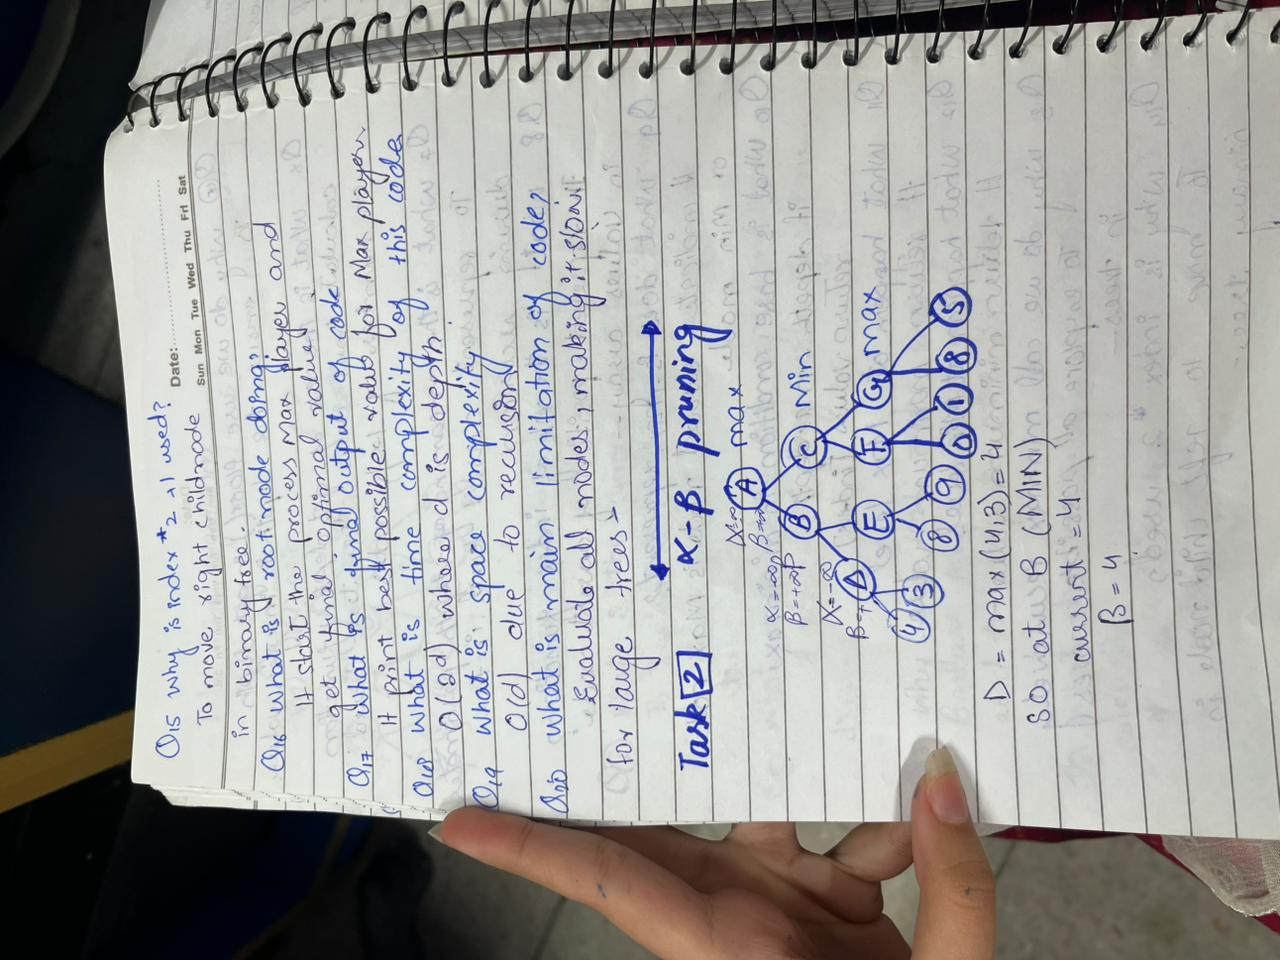 Date:
Sun Mon Tue Wed Thu Fri Sat
Q15 Why is index * 2 +1 used?
To move right childnode
in binary tree.
Q16 What is root node doing?
It start the process max player and
get final optimal value
Q17 What is final output of code
It print best possible value for Max player.
Q18 What is time complexity of this code
O(2d) where d is depth
Q19 What is space complexity
O(d) due to recusion
Q20 What is main limitation of code,
Evaluate all nodes, making it slow
for lauge trees
Task 2 α-β pruning
A max
α=-∞
α=-∞ B=+∞ B C Min
α=-∞
B=+ D E F G max
4 3 8 9 0 1 8 5
D = max (4,3) = 4
SO at B (MIN)
cussent = 4
β = 4